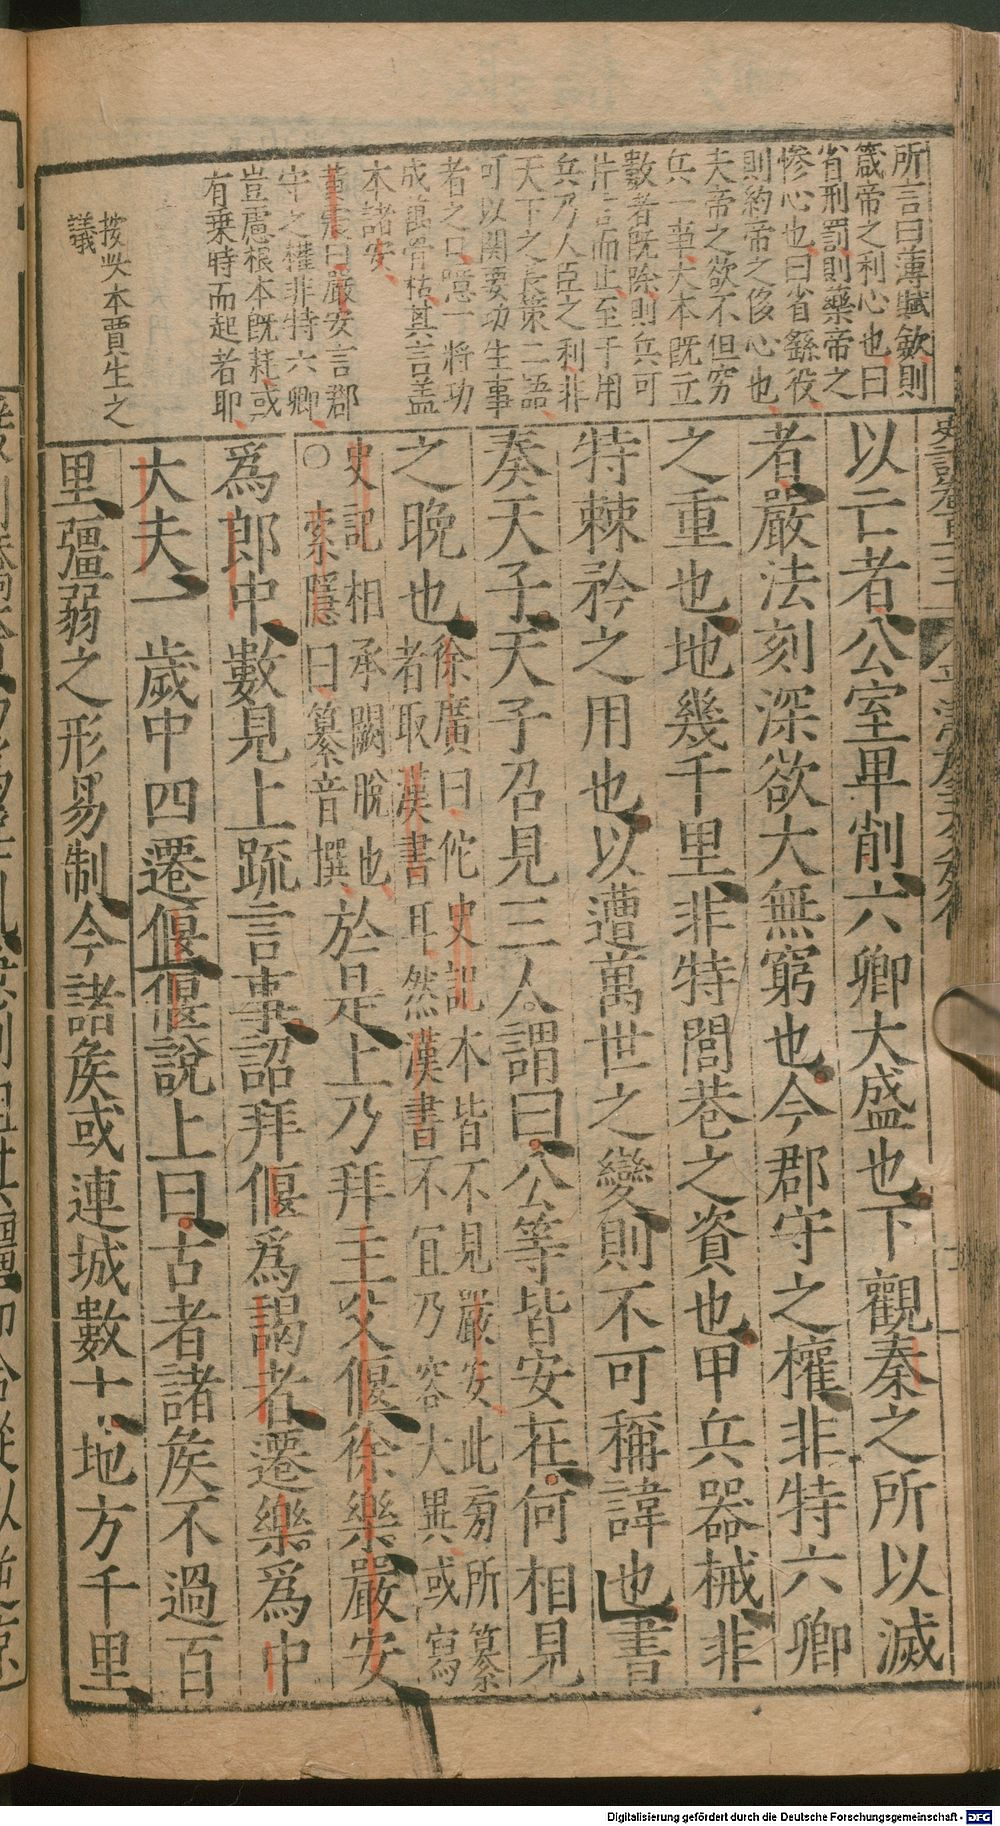 所言曰薄賦斂則
箴帝之利心也曰
省刑罰則藥帝之
慘心也曰省繇役
則約帝之侈心也
夫帝之欲不但窮
兵一事大本既立
數者既除則兵可
片言而止至于用
兵乃人臣之利非
天下之長策二語
可以關要功生事
者之口噫一將功
成萬骨枯其言盖
本諸安
黃震曰嚴安言郡
守之權非特六卿
豈慮根本既耗或
有乗時而起者耶
按此本賈生之
議
以亡者公室卑削六卿大盛也下觀秦之所以滅
者嚴法刻深欲大無窮也今郡守之權非特六卿
之重也地幾千里非特閭巷之資也甲兵器械非
特棘矜之用也以遭萬世之變則不可稱諱也書
奏天子天子召見三人謂曰公等皆安在何相見
之晚也
徐廣曰佗史記本皆不見嚴安此旁所纂
者取漢書耳然漢書不宜乃容大異或寫
史記相承闕脫也
○索隱曰纂音撰
於是上乃拜主父偃徐樂嚴安
爲郎中數見上疏言事詔拜偃爲謁者遷樂爲中
大夫一歲中四遷偃偃說上曰古者諸侯不過百
里彊弱之形易制今諸侯或連城數十地方千里
Digitalisierung gefördert durch die Deutsche Forschungsgemeinschaft - DFG